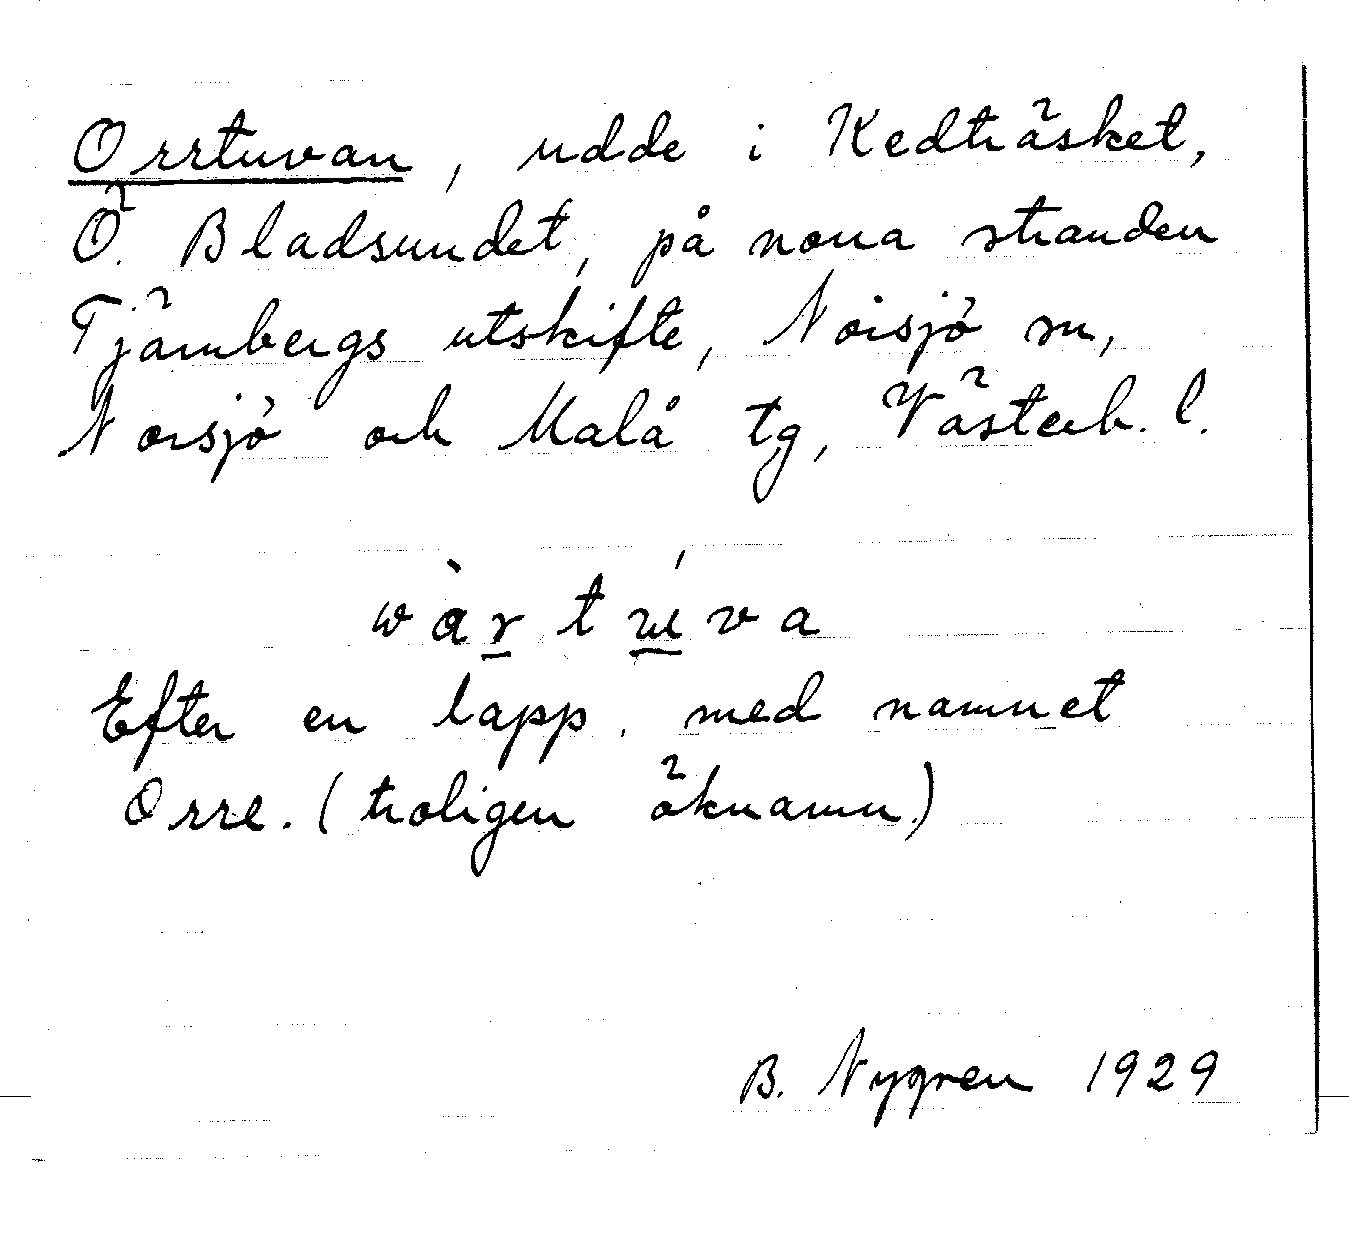 Orrtuvan, udde i Kedträsket,
Ö. Bladsundet, på norra stranden
Tjärnbergs utskifte, Norsjö sn,
Norsjö och Malå tg, Västerb. l.
Efter en lapp. med namnet
Orre. (troligen öknamn.)
B. Nygren 1929